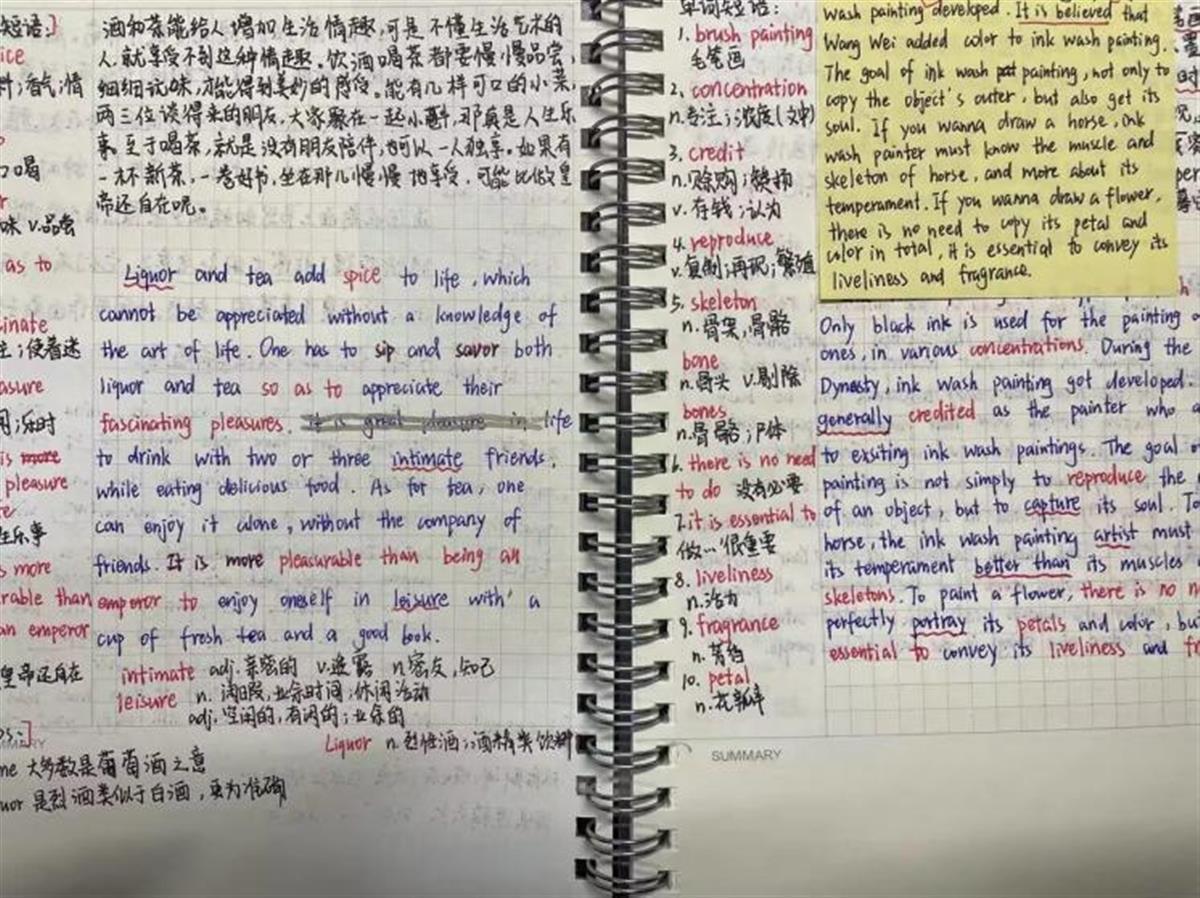 短语:]
ice
料;香气;情
口喝
r
味 v.品尝
as to
cinate
注;使着迷
asure
闲;乐时
is more
pleasure
te
生乐事
s more
rable than
an emperor
皇帝还自在
酒和茶能给人增加生活情趣,可是不懂生活艺术的
人,就享受不到这种情趣。饮酒喝茶都要慢慢品尝,
细细玩味,才能得到美妙的感受。能有几样可口的小菜,
两三位谈得来的朋友,大家聚在一起小酌,那真是人生乐
事。至于喝茶,就是没有朋友陪伴,也可以一人独享。如果有
一杯新茶,一卷好书,坐在那儿慢慢地享受,可能比做皇
帝还自在呢。
Liquor and tea add spice to life, which
cannot be appreciated without a knowledge of
the art of life. One has to sip and savor both
liquor and tea so as to appreciate their
fascinating pleasures. It is great pleasure in life
to drink with two or three intimate friends,
while eating delicious food. As for tea, one
can enjoy it alone, without the company of
friends. It is more pleasurable than being an
emperor to enjoy oneself in leisure with a
cup of fresh tea and a good book.
intimate adj.亲密的 v.透露 n.密友,知己
leisure n. 闲暇,业余时间;休闲活动
adj.空闲的,有闲的;业余的
Liquor n.烈性酒;酒精类饮料
os:]
MMARY
ne 大多数是葡萄酒之意
uor 是烈酒类似于白酒,更为准确
单词短语:
1. brush painting
毛笔画
2. concentration
n.专注;浓度(文中)
3. credit
n.赊购;赞扬
v.存钱;认为
4. reproduce
v.复制;再现;繁殖
5. skeleton
n.骨架,骨骼
bone
n.骨头 v.剔除
bones
n.骨骼;尸体
6. there is no need
to do 没有必要
7. it is essential to
做…很重要
8. liveliness
n.活力
9. fragrance
n.芳香
10. petal
n.花瓣
wash painting developed. It is believed that
Wang Wei added color to ink wash painting.
The goal of ink wash painting, not only to
copy the object's outer, but also get its
soul. If you wanna draw a horse, ink
wash painter must know the muscle and
skeleton of horse, and more about its
temperament. If you wanna draw a flower,
there is no need to copy its petal and
color in total, it is essential to convey its
liveliness and fragrance.
Only black ink is used for the painting o
ones, in various concentrations. During the
Dynasty, ink wash painting got developed.
generally credited as the painter who a
to exsiting ink wash paintings. The goal o
painting is not simply to reproduce the
of an object, but to capture its soul. To
horse, the ink wash painting artist must
its temperament better than its muscles
skeletons. To paint a flower, there is no n
perfectly portray its petals and color, but
essential to convey its liveliness and fr
SUMMARY